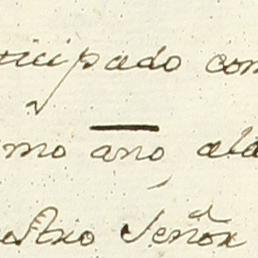 ticipado con
mo año, ala
stro Señor